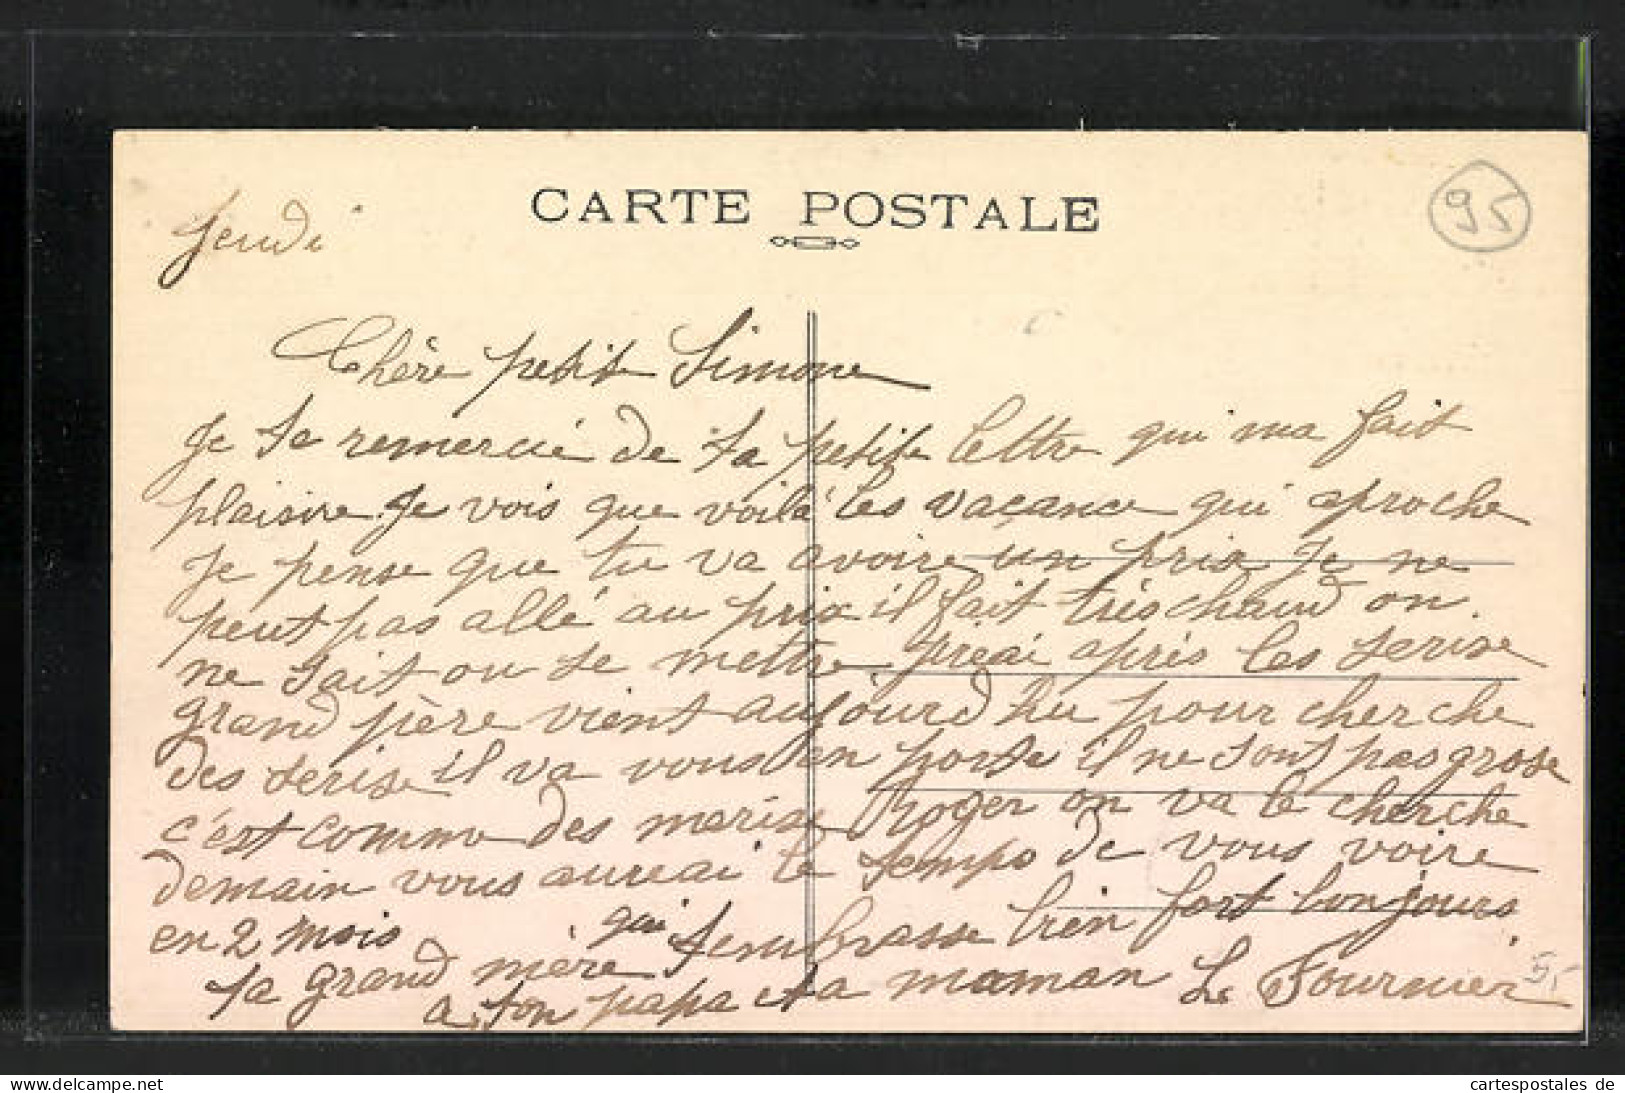 CARTE POSTALE
95
Jeudi
Chère petite Simone
Je te remercie de ta petite lettre qui ma fait
plaisire Je vois que voilà les vacance qui aproche
Je pense que tu va avoire un prix Je ne
peut pas allé au prix il fait très chaud on
ne sait ou se mettre après les serise
grand père vient aujourd hui pour cherche
des serise il va vous en porte il ne sont pas grose
c'est comme des Roger on va le cherche
demain vous aureai le temps de vous voire
en 2 mois
ta grand mère qui t'embrasse bien fort bonjours
a ton papa et ta maman Le Fournier
www.delcampe.net
cartespostales de